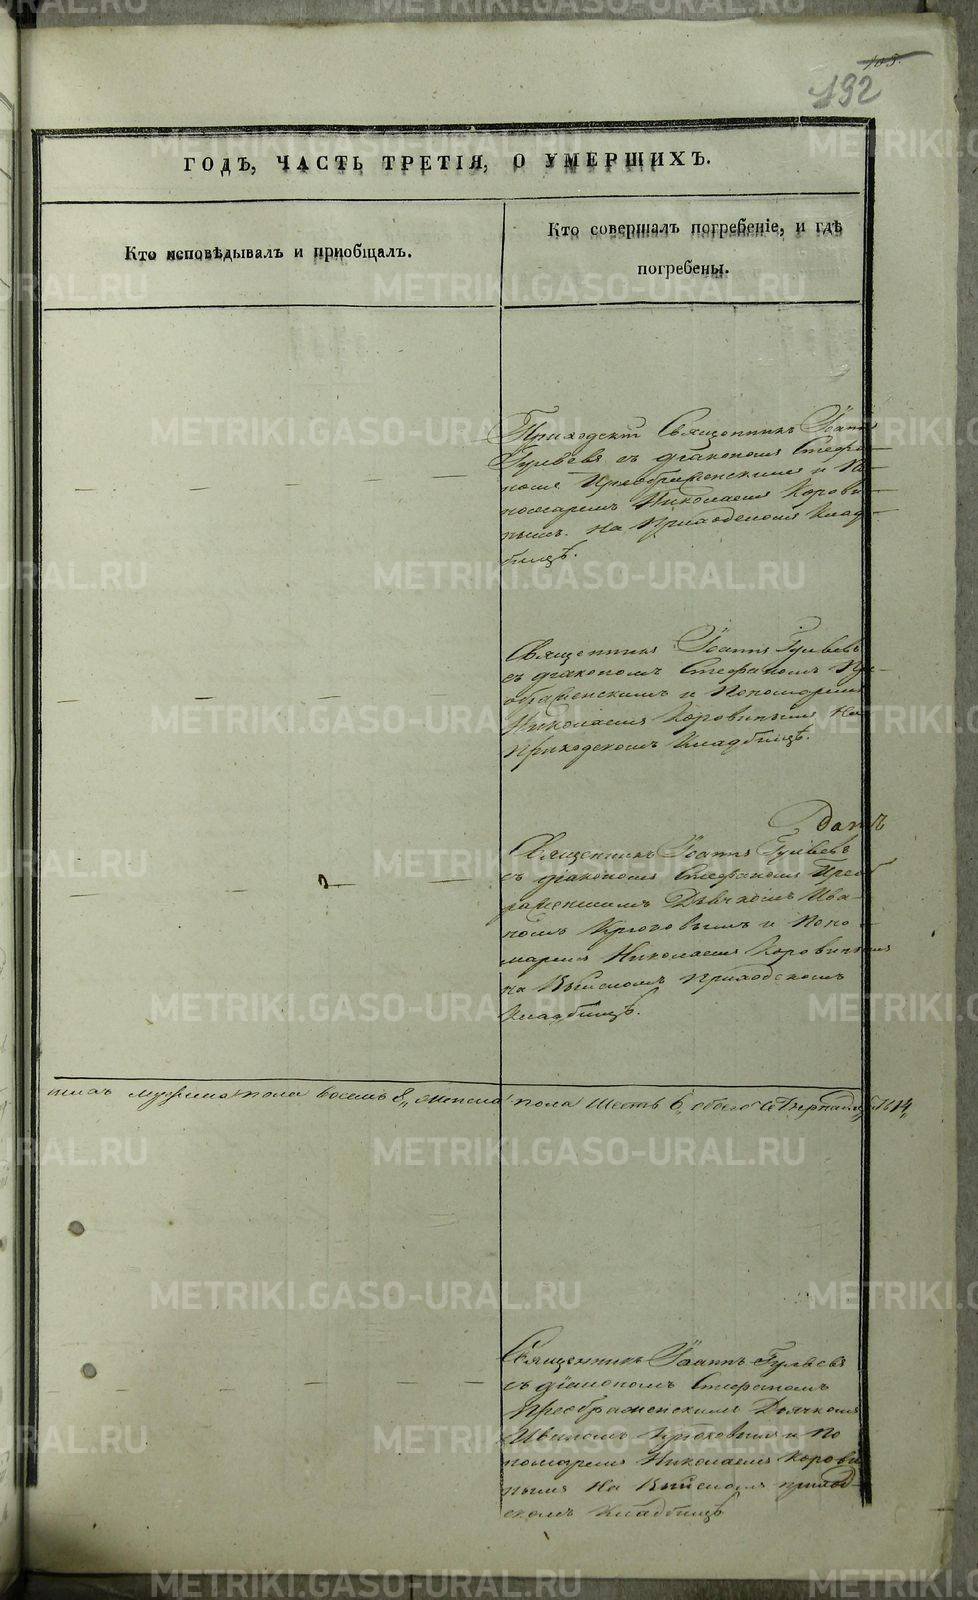 105.
192
ГОДЪ, ЧАСТЬ ТРЕТІЯ, О УМЕРШИХЪ.
Кто исповѣдывалъ и пріобщалъ.
Кто совершалъ погребеніе, и гдѣ
погребены.
Приходскій Священникъ Іоаннъ
Гуляевъ съ діакономъ Стефа-
номъ Преображенскимъ и По-
номаремъ Николаемъ Корови-
нымъ. На Приходскомъ Клад-
бищѣ.
Священникъ Іоаннъ Гуляевъ
съ діакономъ Стефаномъ Прео-
браженскимъ и Пономаремъ
Николаемъ Коровинымъ На
Приходскомъ Кладбищѣ.
Священникъ Іоаннъ Гуляевъ
съ діакономъ Стефаномъ Преоб
раженскимъ Дьячкомъ Ива-
номъ Крюковымъ и Поно-
маремъ Николаемъ Коровинымъ
на Выйскомъ Приходскомъ
Кладбищѣ.
мужеска пола восемь 8, женска пола шесть 6, обоего 14,
Священникъ Іоаннъ Гуляевъ
съ діакономъ Стефаномъ
Преображенскимъ Дьячкомъ
Иваномъ Крюковымъ и По
номаремъ Николаемъ Корови
нымъ На Выйскомъ приход-
скомъ Кладбищѣ
METRIKI.GASO-URAL.RU